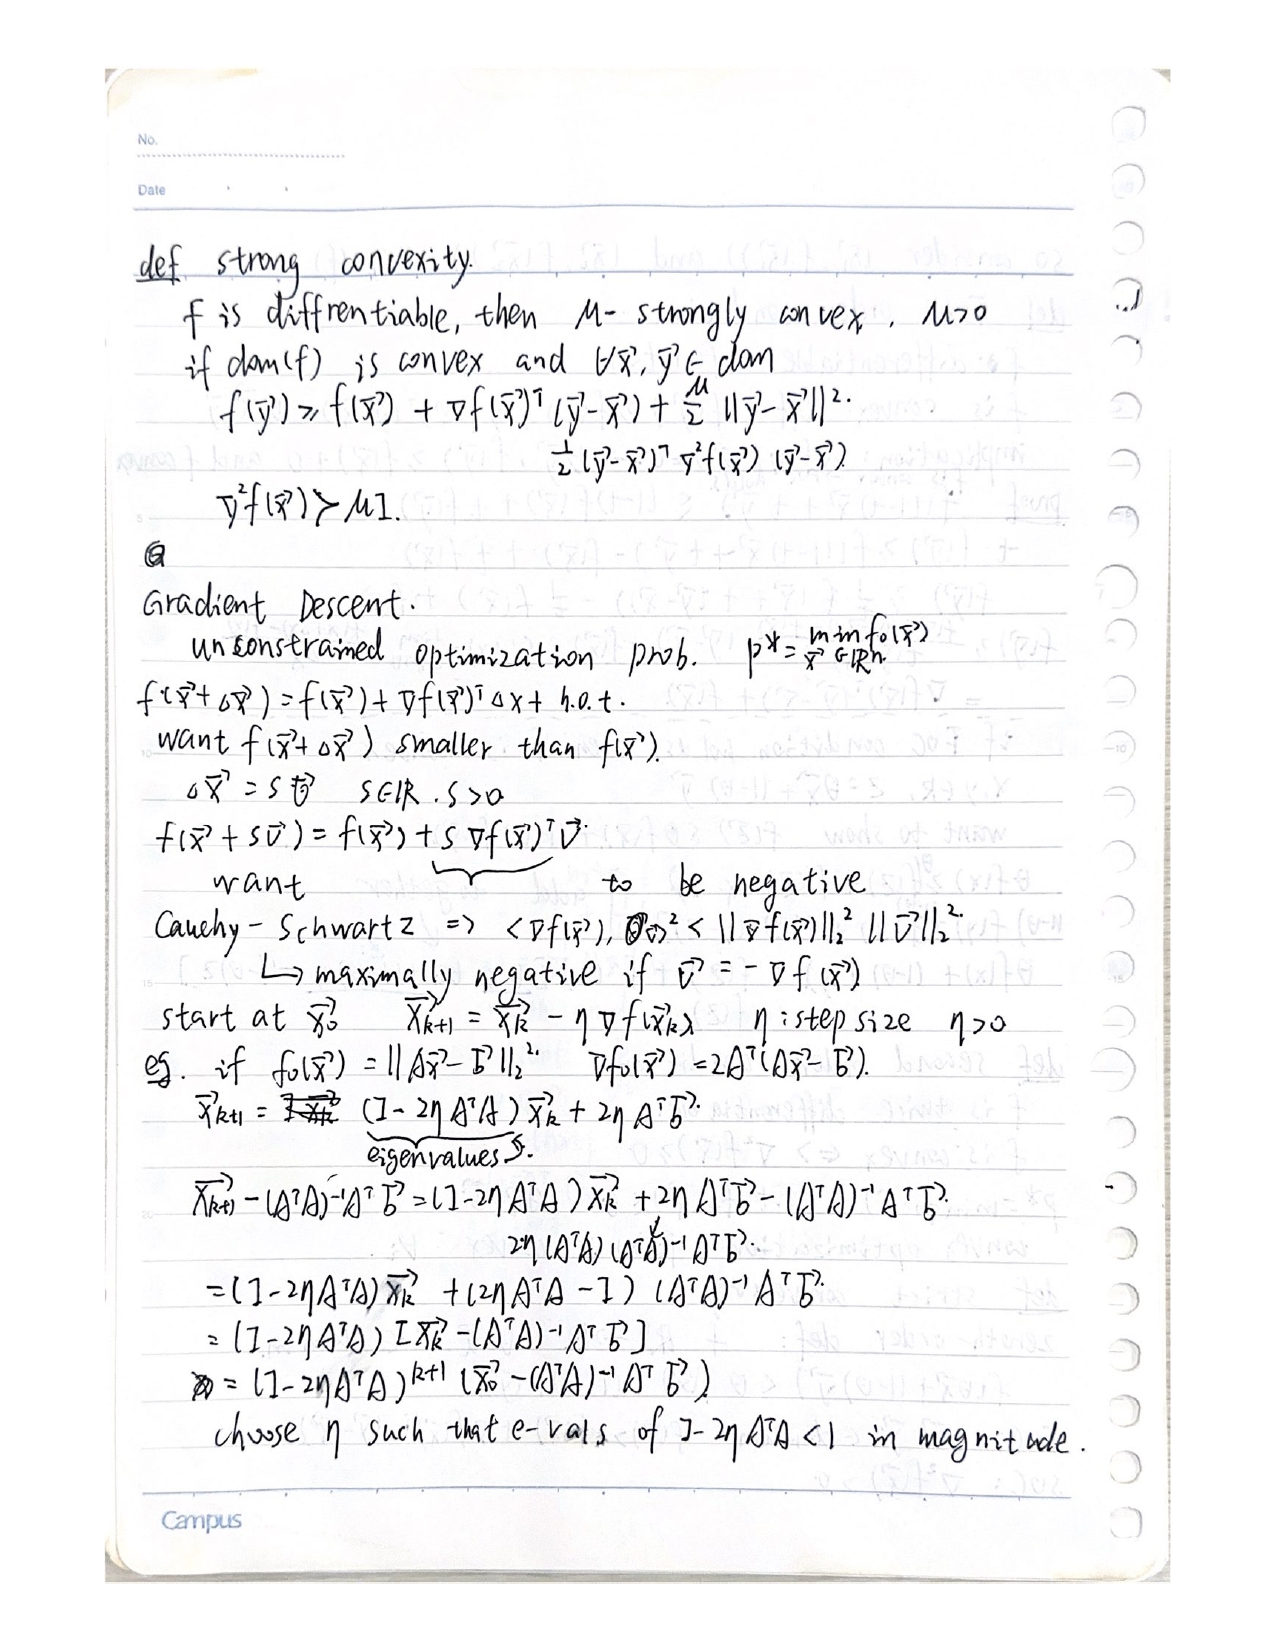 No.
Date
def strong convexity.
f is diffrentiable, then μ- strongly convex. μ>0
if dom(f) is convex and ∀x⃗, y⃗ ∈ dom
f(y⃗) ≥ f(x⃗) + ∇f(x⃗)ᵀ (y⃗-x⃗) + μ/2 ||y⃗-x⃗||².
1/2 (y⃗-x⃗)ᵀ ∇²f(x⃗) (y⃗-x⃗)
∇²f(x⃗) ≻ μI.
Gradient Descent.
unconstrained optimization prob. p* = min f₀(x⃗)
x⃗ ∈ℝⁿ.
f(x⃗+Δx⃗) = f(x⃗) + ∇f(x⃗)ᵀ Δx + h.o.t.
want f(x⃗+Δx⃗) smaller than f(x⃗).
Δx⃗ = s v⃗ s∈ℝ. s>0
f(x⃗ + sv⃗) = f(x⃗) + s ∇f(x⃗)ᵀ v⃗.
want to be negative
Cauchy - Schwartz => <∇f(x⃗), v⃗>² < ||∇f(x⃗)||₂² ||v⃗||₂².
↳ maximally negative if v⃗ = - ∇f (x⃗)
start at x⃗₀ x⃗ₖ₊₁ = x⃗ₖ - η ∇f(x⃗ₖ) η : step size η>0
eg. if f₀(x⃗) = ||Ax⃗-b⃗||₂². ∇f₀(x⃗) = 2Aᵀ(Ax⃗-b⃗).
x⃗ₖ₊₁ = (I - 2η AᵀA) x⃗ₖ + 2η Aᵀb⃗.
eigenvalues.
x⃗ₖ₊₁ - (AᵀA)⁻¹Aᵀb⃗ = (I-2ηAᵀA) x⃗ₖ + 2η Aᵀb⃗ - (AᵀA)⁻¹ Aᵀb⃗.
2η (AᵀA) (AᵀA)⁻¹ Aᵀb⃗.
= (I-2ηAᵀA) x⃗ₖ + (2ηAᵀA - I) (AᵀA)⁻¹ Aᵀb⃗.
= (I-2ηAᵀA) [x⃗ₖ - (AᵀA)⁻¹ Aᵀb⃗]
= (I-2ηAᵀA)ᵏ⁺¹ (x⃗₀ - (AᵀA)⁻¹ Aᵀb⃗)
choose η such that e-vals of I-2ηAᵀA <1 in magnitude.
Campus